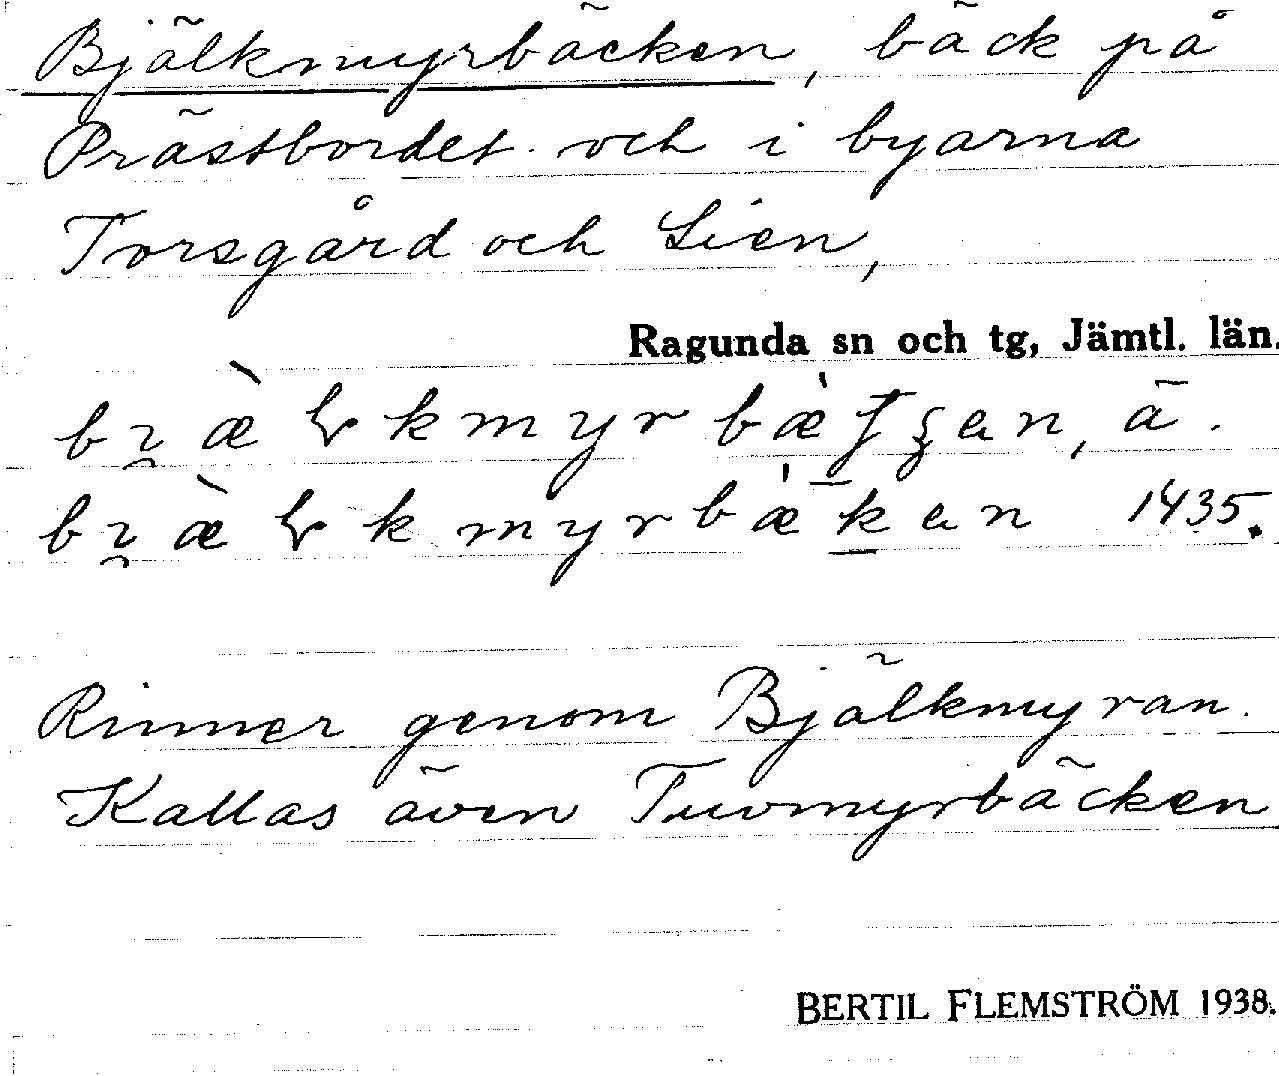 Bjälkmyrbäcken, bäck på
Prästbordet och i byarna
Torsgård och Lien,
Ragunda sn och tg, Jämtl. län.
ä.
1435.
Rinner genom Bjälkmyran.
Kallas även Tuvmyrbäcken
BERTIL FLEMSTRÖM 1938.